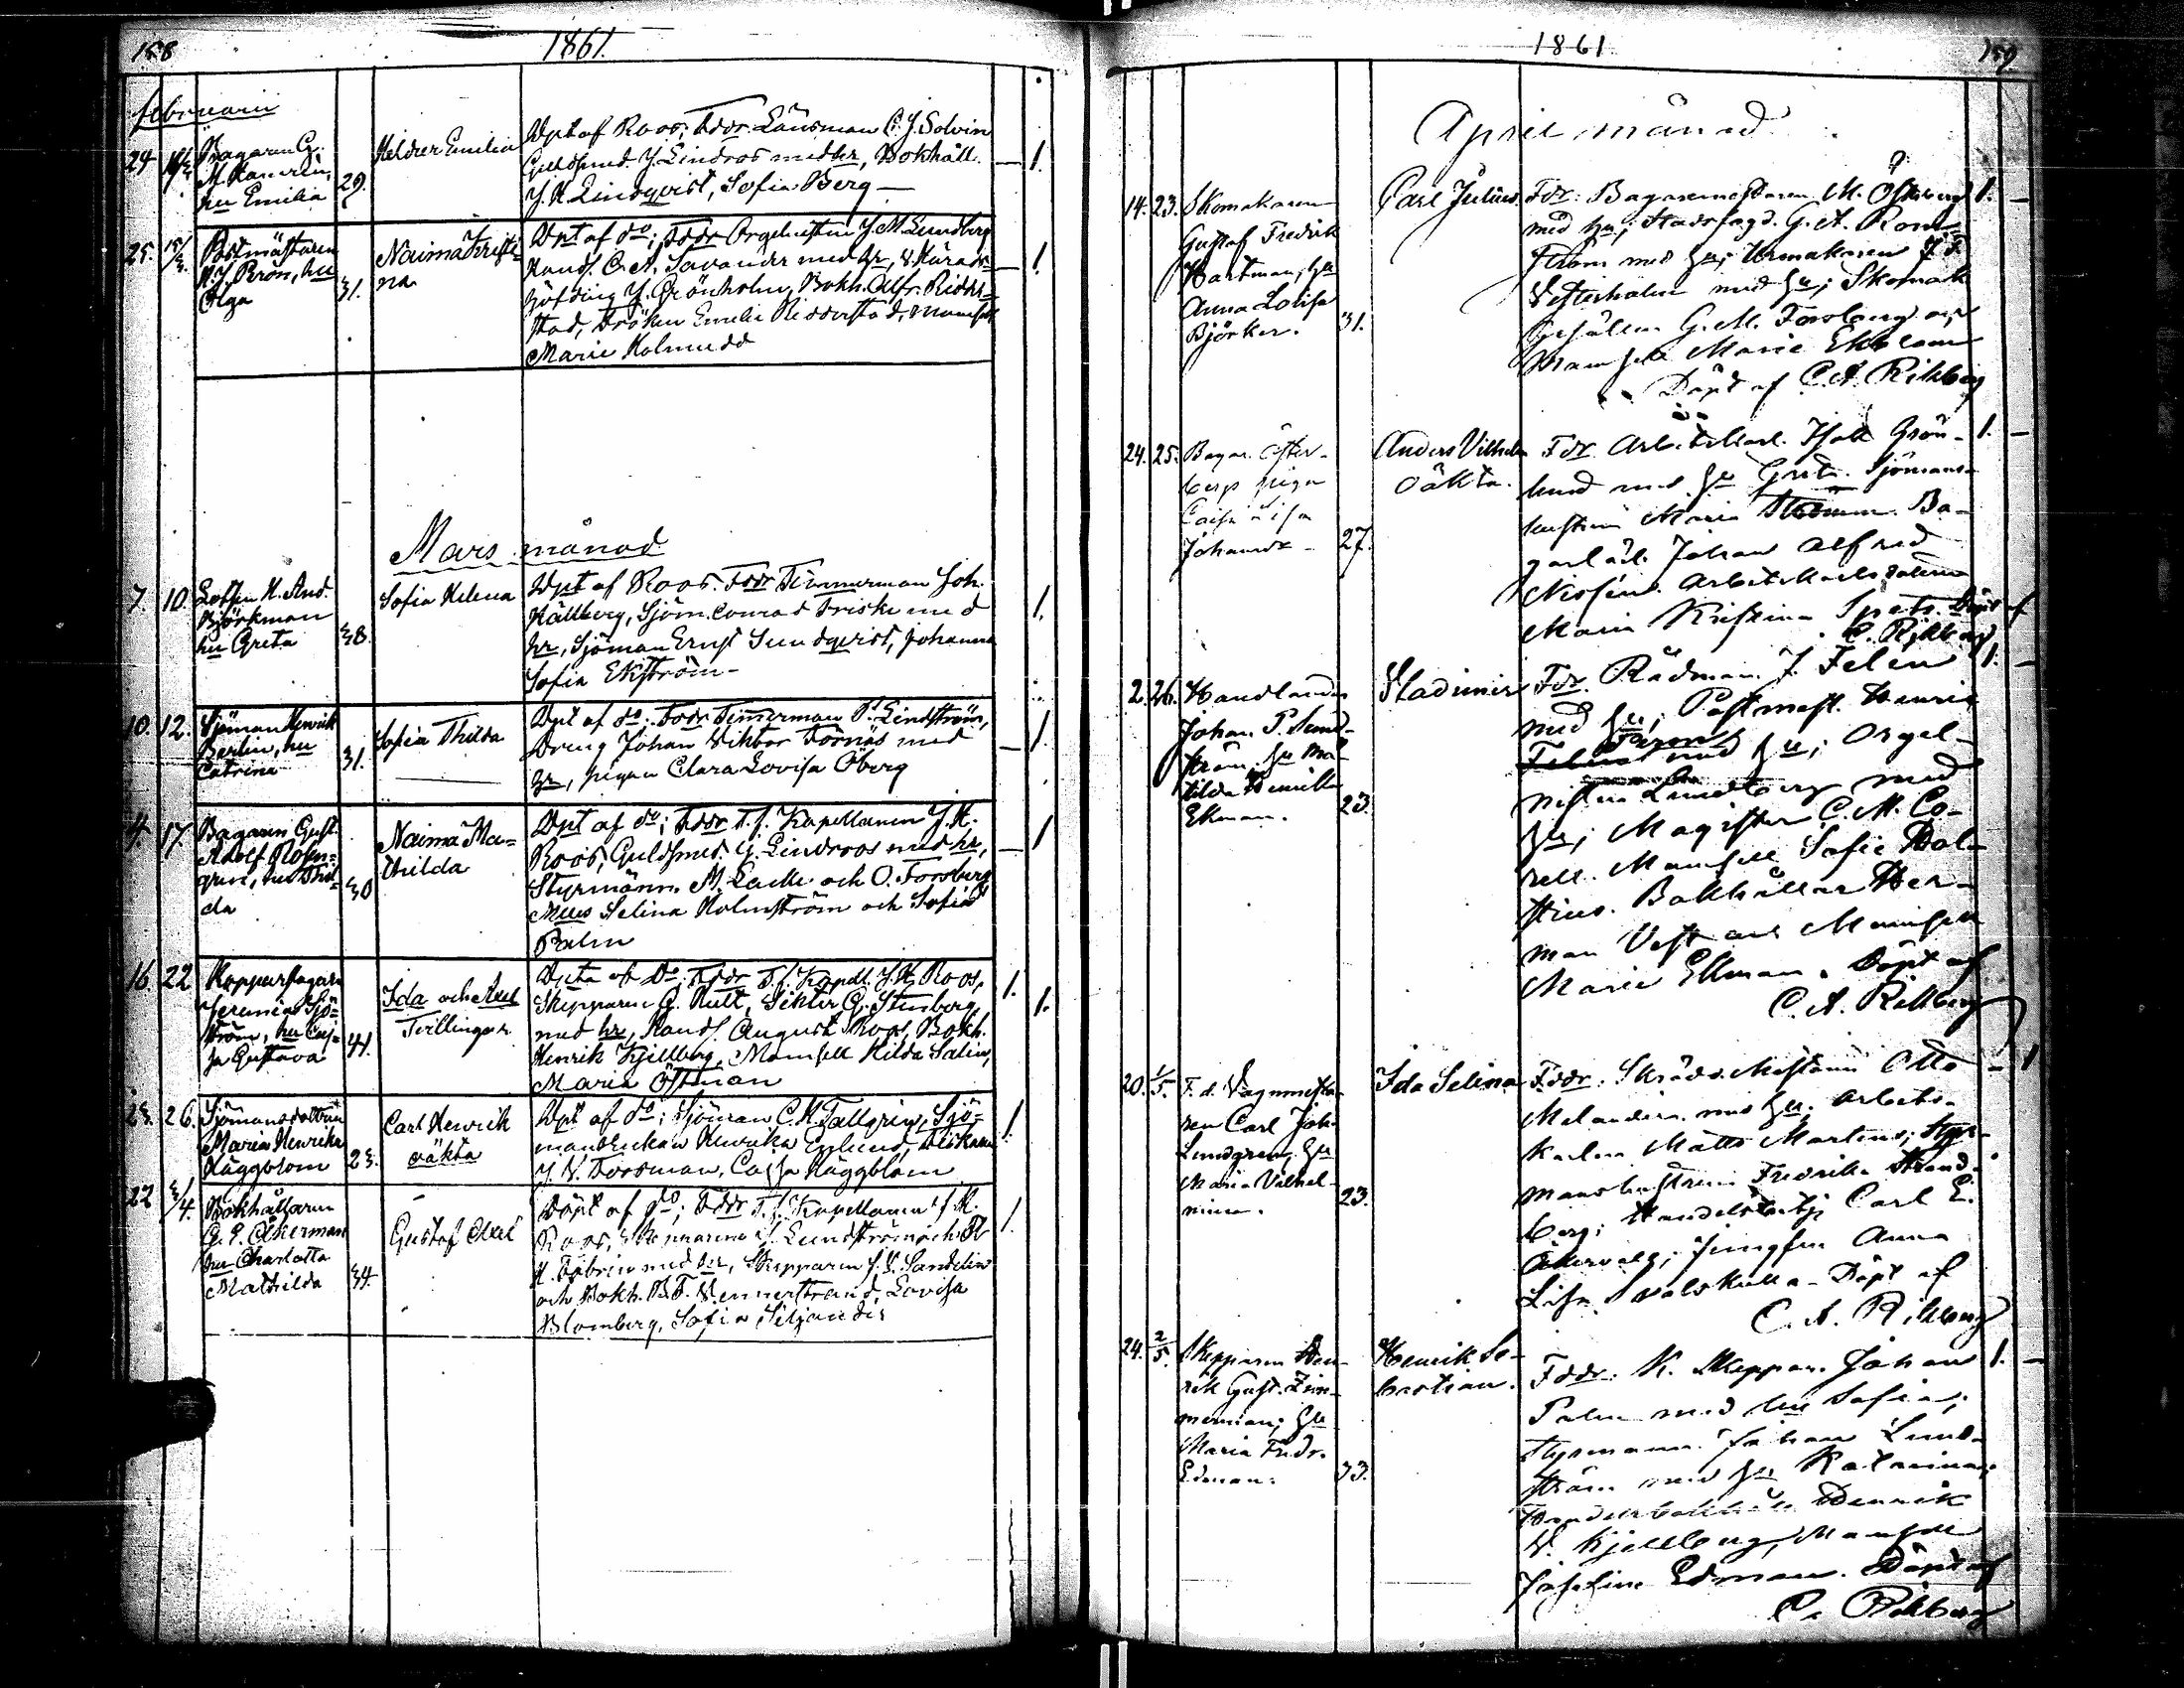 158
1861.
februarii
24 Bagaren G.
hu Emilia
29.
Emilia
Dpt af Roos; Fddr Länsman C. J. Solvin
Guldsmed J. Lindros med hr, Bokhåll.
J. H. Lindqvist, Sofia Berg
1.
25. 15/3. Postmästaren
H. J. hu
Olga
31.
Naima Kristi-
na
Dpt af do; Fddr Orgelnisten J. M. Lundberg
Kand. C. A. Savander med hr, V. Härads-
höfding J. Grönholm, Bokh. Alfr. Ridder-
stad, Fröken Emelie Ridderstad, Mamsell
Marie Holmudd
1.
Mars månad
7. 10. Lotsen H. And.
Björkman
hu Greta
38.
Sofia Helena
Dpt af Roos. Fddr Timmerman Joh.
Källberg, Sjöm. Conrad Friske med
hr, Sjöman Ernst Sundqvist, Johanna
Sofia Ekström
1.
10. 12. Sjöman Henrik
Berlin, hu
Catrina
31.
Sofia Thilda
Dpt af do. Fddr Timmerman P. Lindström,
Dreng Johan Viktor Törnäs med
hr, pigan Clara Lovisa Öberg
1.
4. 17. Bagaren Gust.
Adolf Rosen-
gren, hu Thil-
da
30
Naima Ma-
thilda
Dpt af do; Fddr T. f. Kapellanen J. H.
Roos, Guldsmed. J. Lindroos med hr,
Styrmänn. M. och O. Forsberg
Mlles Selina Holmström och Sofia
Palm
1
16. 22 Kopparslagare
Jeremias Sjö-
ström, hu Caj-
sa Gustava
44.
Ida och Axel
Tvillingar.
Dpta af Do; Fddr T. f. Kapell. J. H. Roos,
Skepparne G. Hult, Viktor G. Stenberg,
med hr, Kand. August Roos, Bokh.
Henrik Kjellberg, Mamsell Hilda Salin,
Maria Östman
1.
1.
23. 26. Sjömansdottren
Maria Henrika
Häggblom
23.
Carl Henrik
oäkta
Dpt af do; Sjöman C. H. Tallgren, Sjö-
mansenkan Henrika Englund,
J. V. Forsman, Cajsa Häggblom
1.
22 3/4. Bokhållaren
G. E. Åkerman
hu Charlotta
Mathilda
34.
Gustaf Axel
Döpt af do; Fddr T. f. Kapellanen J. H.
Roos, Skepparne J. Lundström och A.
H. med hr, Skepparen J. S. Sandelin
och Bokh. B. F. Wennerstrand, Lovisa
Blomberg, Sofia Siljander
1.
1861
159
April månad
14. 23. Skomakaren
Gustaf Fredrik
Hartman, hu
Anna Lovisa
Björker.
31.
Carl Julius.
Fdr: Bagaremästaren M. Österberg
med hu; Stadsfogd. G. A. Rom-
ström med hu; Urmakaren
Vesterholm med hu; Skomak
Gesällen G. M. Forsberg och
Mamsell Marie Ekblom
Döpt af C. A. Rikberg
1. -
24. 25. Bagar. Öster-
bergs piga
Caisa Lisa
Johansdr
27.
Anders Vilhelm
Oäkta.
Fdr Arbetskarl. Isak Grön-
lund med hu Greta. Sjömans-
hustrun Maria Ström. Ba-
gerlär. Johan Alfred
Arbetskarlsdottren
Maria Kristina Döpt af
C. Rikberg
1. -
2. 26. Handlanden
Johan P. Sund-
ström, hu Ma-
tilda
Ekman.
23.
Vladimir
Fdr. Rådman. J. Felen
med hu; Postmäst. Henric
med hu; Orgel-
nisten Lundberg med
hu; Magister C. M. Co-
rell. Mamsell Sofie
Bokhållar Her-
man och Mamsell
Marie Ekman. Döpt af
C. A. Rikberg
1. -
20. 1/5. F. d. Vagnmästa-
ren Carl Joh.
Lundgren, hu
Maria Vilhel-
mina.
23.
Ida Selina
Fddr. Skräd. Mästaren Otto
Melander med hu. Arbets-
karlen Matts Martens; Styr-
manshustrun Fredrika Strand-
berg; Carl E.
Åkervall; Jungfru Anna
Lisa Döpt af
C. A. Rikberg
- 1
24. 2/5. Skepparen Hen-
rik Gust. Zim-
merman; hu
Maria Fredr.
Edman.
33.
Henrik Se-
bastian.
Fddr. K. Skeppar. Johan
Palm med hu Sofia;
Styrmann. Johan Lund-
ström med hu Katarina;
Henrik
V. Kjellberg, Mamsell
Josefine Edman. Döpt af
C. Rikberg
1. -